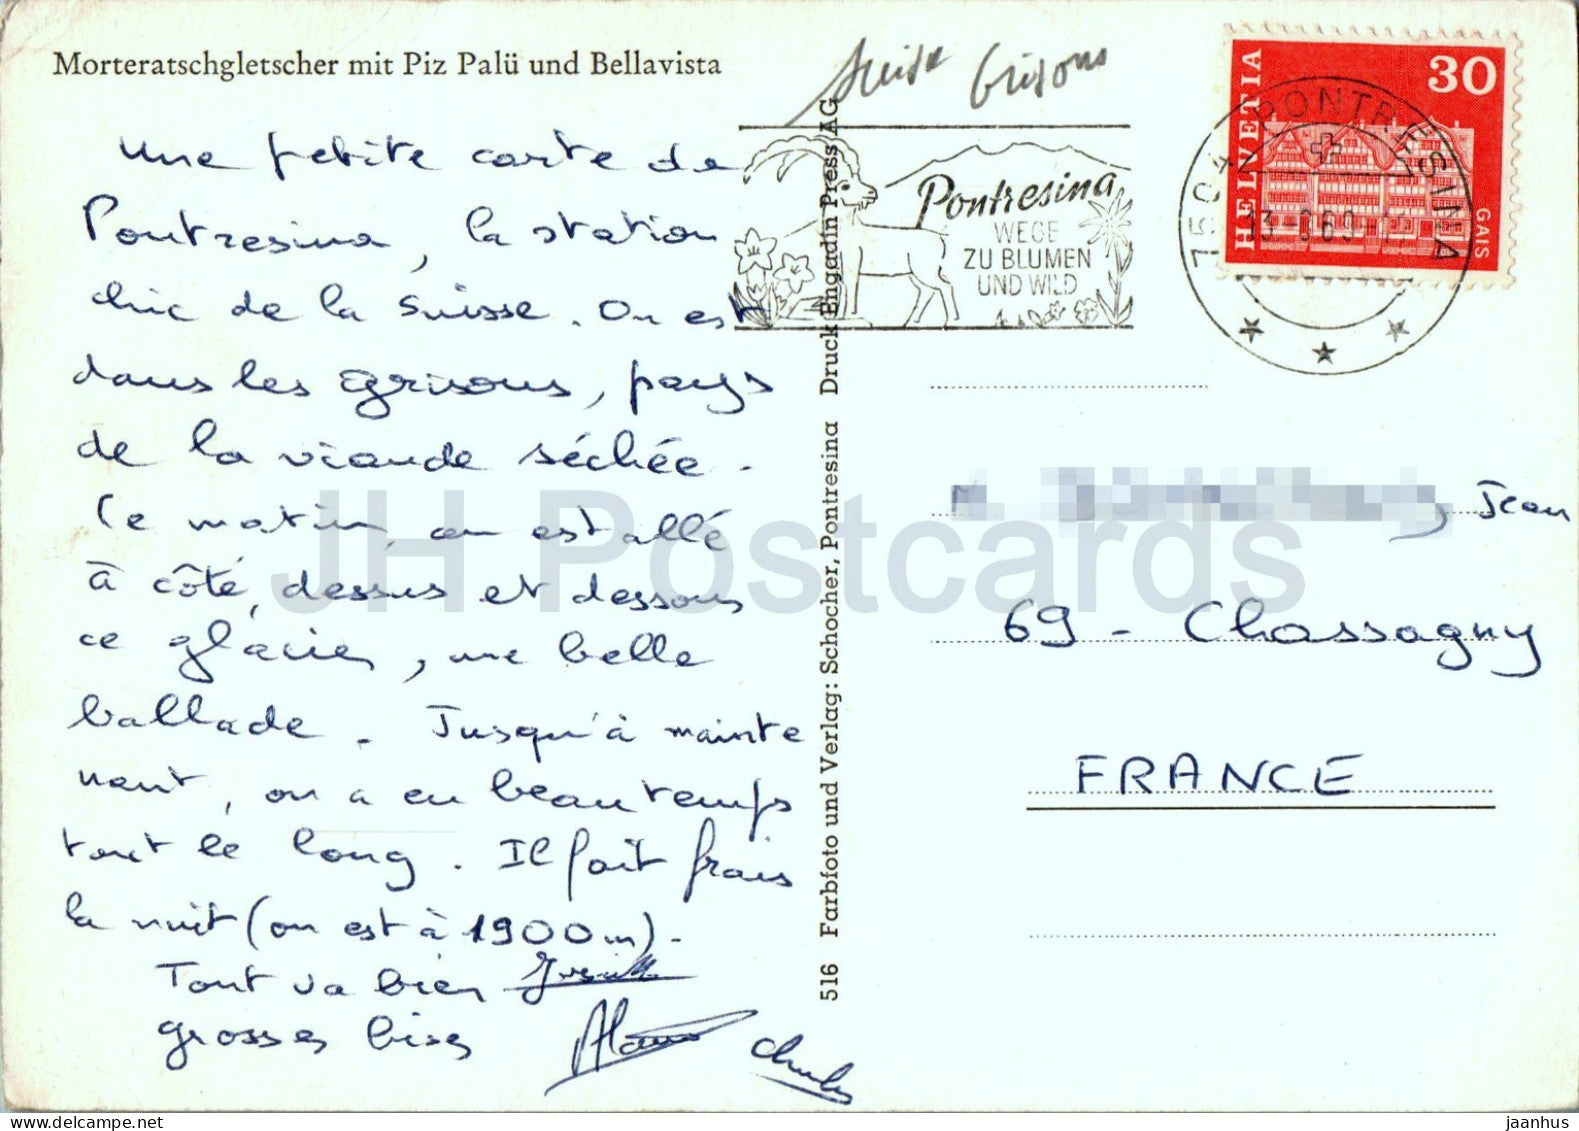 Morteratschgletscher mit Piz Palü und Bellavista
Suisse Grisons
Une petite carte de
Pontresina, la station
chic de la Suisse. On est
dans les grisons, pays
de la viande séchée.
Ce matin, on est allé
à côté, dessus et dessous
ce glacier, une belle
ballade. Jusqu'à mainte
nant, on a eu beau temps
tout le long. Il fait frais
la nuit (on est à 1900 m).
Tout va bien
grosses bises
Druck Engadin Press AG
516 Farbfoto und Verlag: Schocher, Pontresina
Pontresina
WEGE
ZU BLUMEN
UND WILD
7504 PONTRESINA
HELVETIA
30
GAIS
Jean
69 - Chassagny
FRANCE
JH Postcards
www.delcampe.net
jaanhus